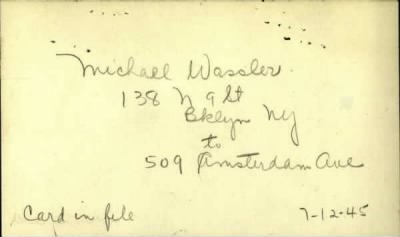 Michael Wassler
138 N 9 St
Bklyn NY
to
509 Amsterdam Ave
Card in file
7-12-45